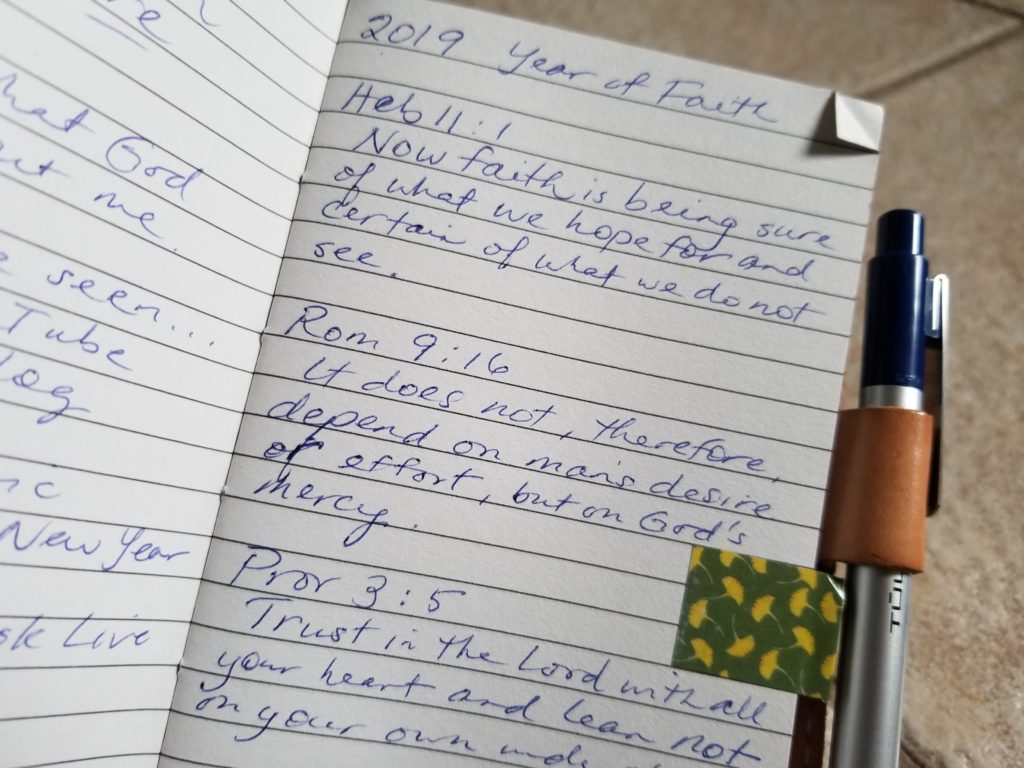 God
me.
seen...
Tube
New Year
Live
2019 Year of Faith
Heb 11:1
Now faith is being sure
of what we hope for and
certain of what we do not
see.
Rom 9:16
It does not, therefore,
depend on man's desire
or effort, but on God's
mercy.
Prov 3:5
Trust in the Lord with all
your heart and lean not
on your own